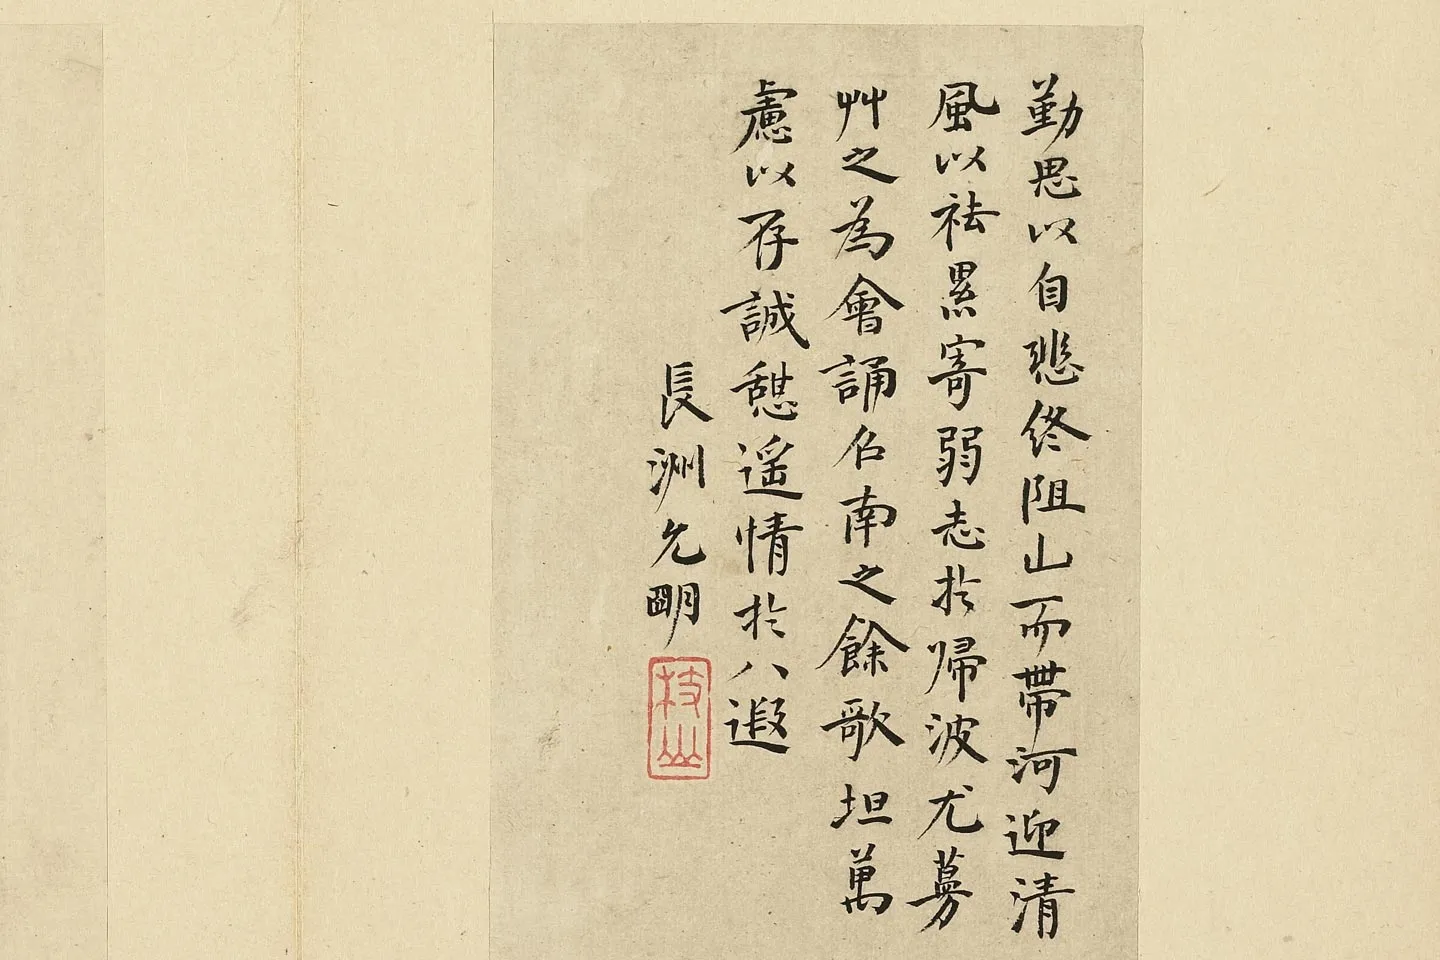 勤思以自悲終阻山而帶河迎清
風以祛累寄弱志於歸波尤蔓
艸之為會誦召南之餘歌坦萬
慮以存誠憩遥情於八遐
長洲允明
枝山